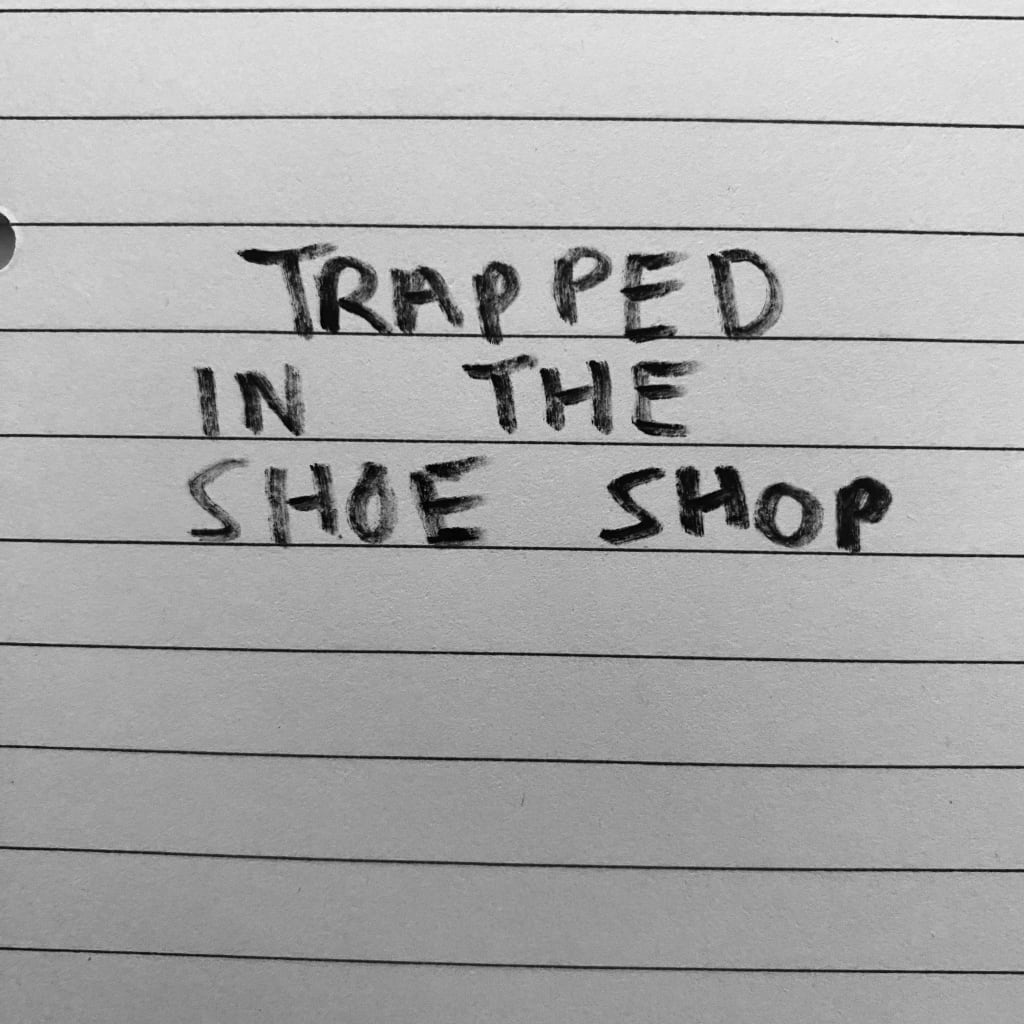 TRAPPED
IN THE
SHOE SHOP